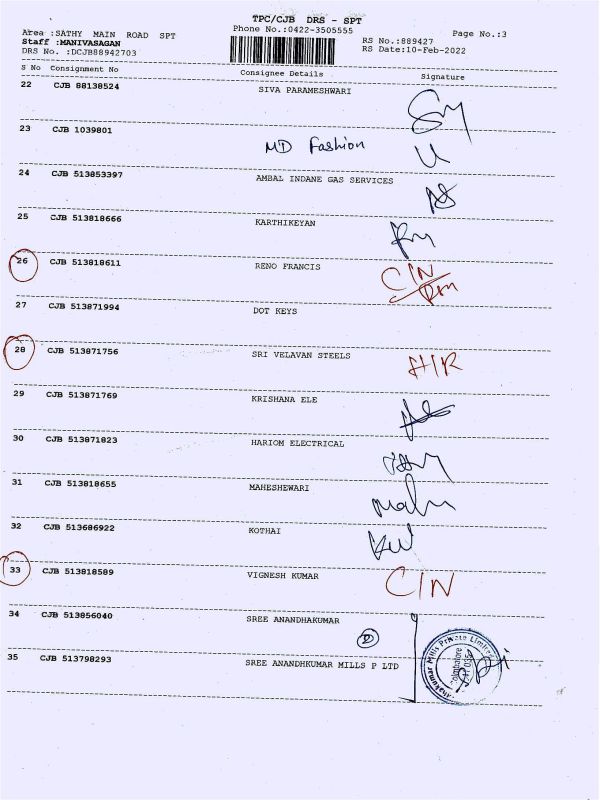 TPC/CJB DRS - SPT
Area :SATHY MAIN ROAD SPT Phone No.:0422-3505555 Page No.:3
Staff :MANIVASAGAN RS No.:889427
DRS No. :DCJB88942703 RS Date:10-Feb-2022
S No Consignment No Consignee Details Signature
22 CJB 88138524 SIVA PARAMESHWARI
23 CJB 1039801
MD Fashion
24 CJB 513853397 AMBAL INDANE GAS SERVICES
25 CJB 513818666 KARTHIKEYAN
26 CJB 513818611 RENO FRANCIS C/N
27 CJB 513871994 DOT KEYS
28 CJB 513871756 SRI VELAVAN STEELS H/R
29 CJB 513871769 KRISHANA ELE
30 CJB 513871823 HARIOM ELECTRICAL
31 CJB 513818655 MAHESHEWARI
32 CJB 513686922 KOTHAI
33 CJB 513818589 VIGNESH KUMAR C/N
34 CJB 513856040 SREE ANANDHAKUMAR
35 CJB 513798293 SREE ANANDHKUMAR MILLS P LTD
Mills Private Limited
Coimbatore